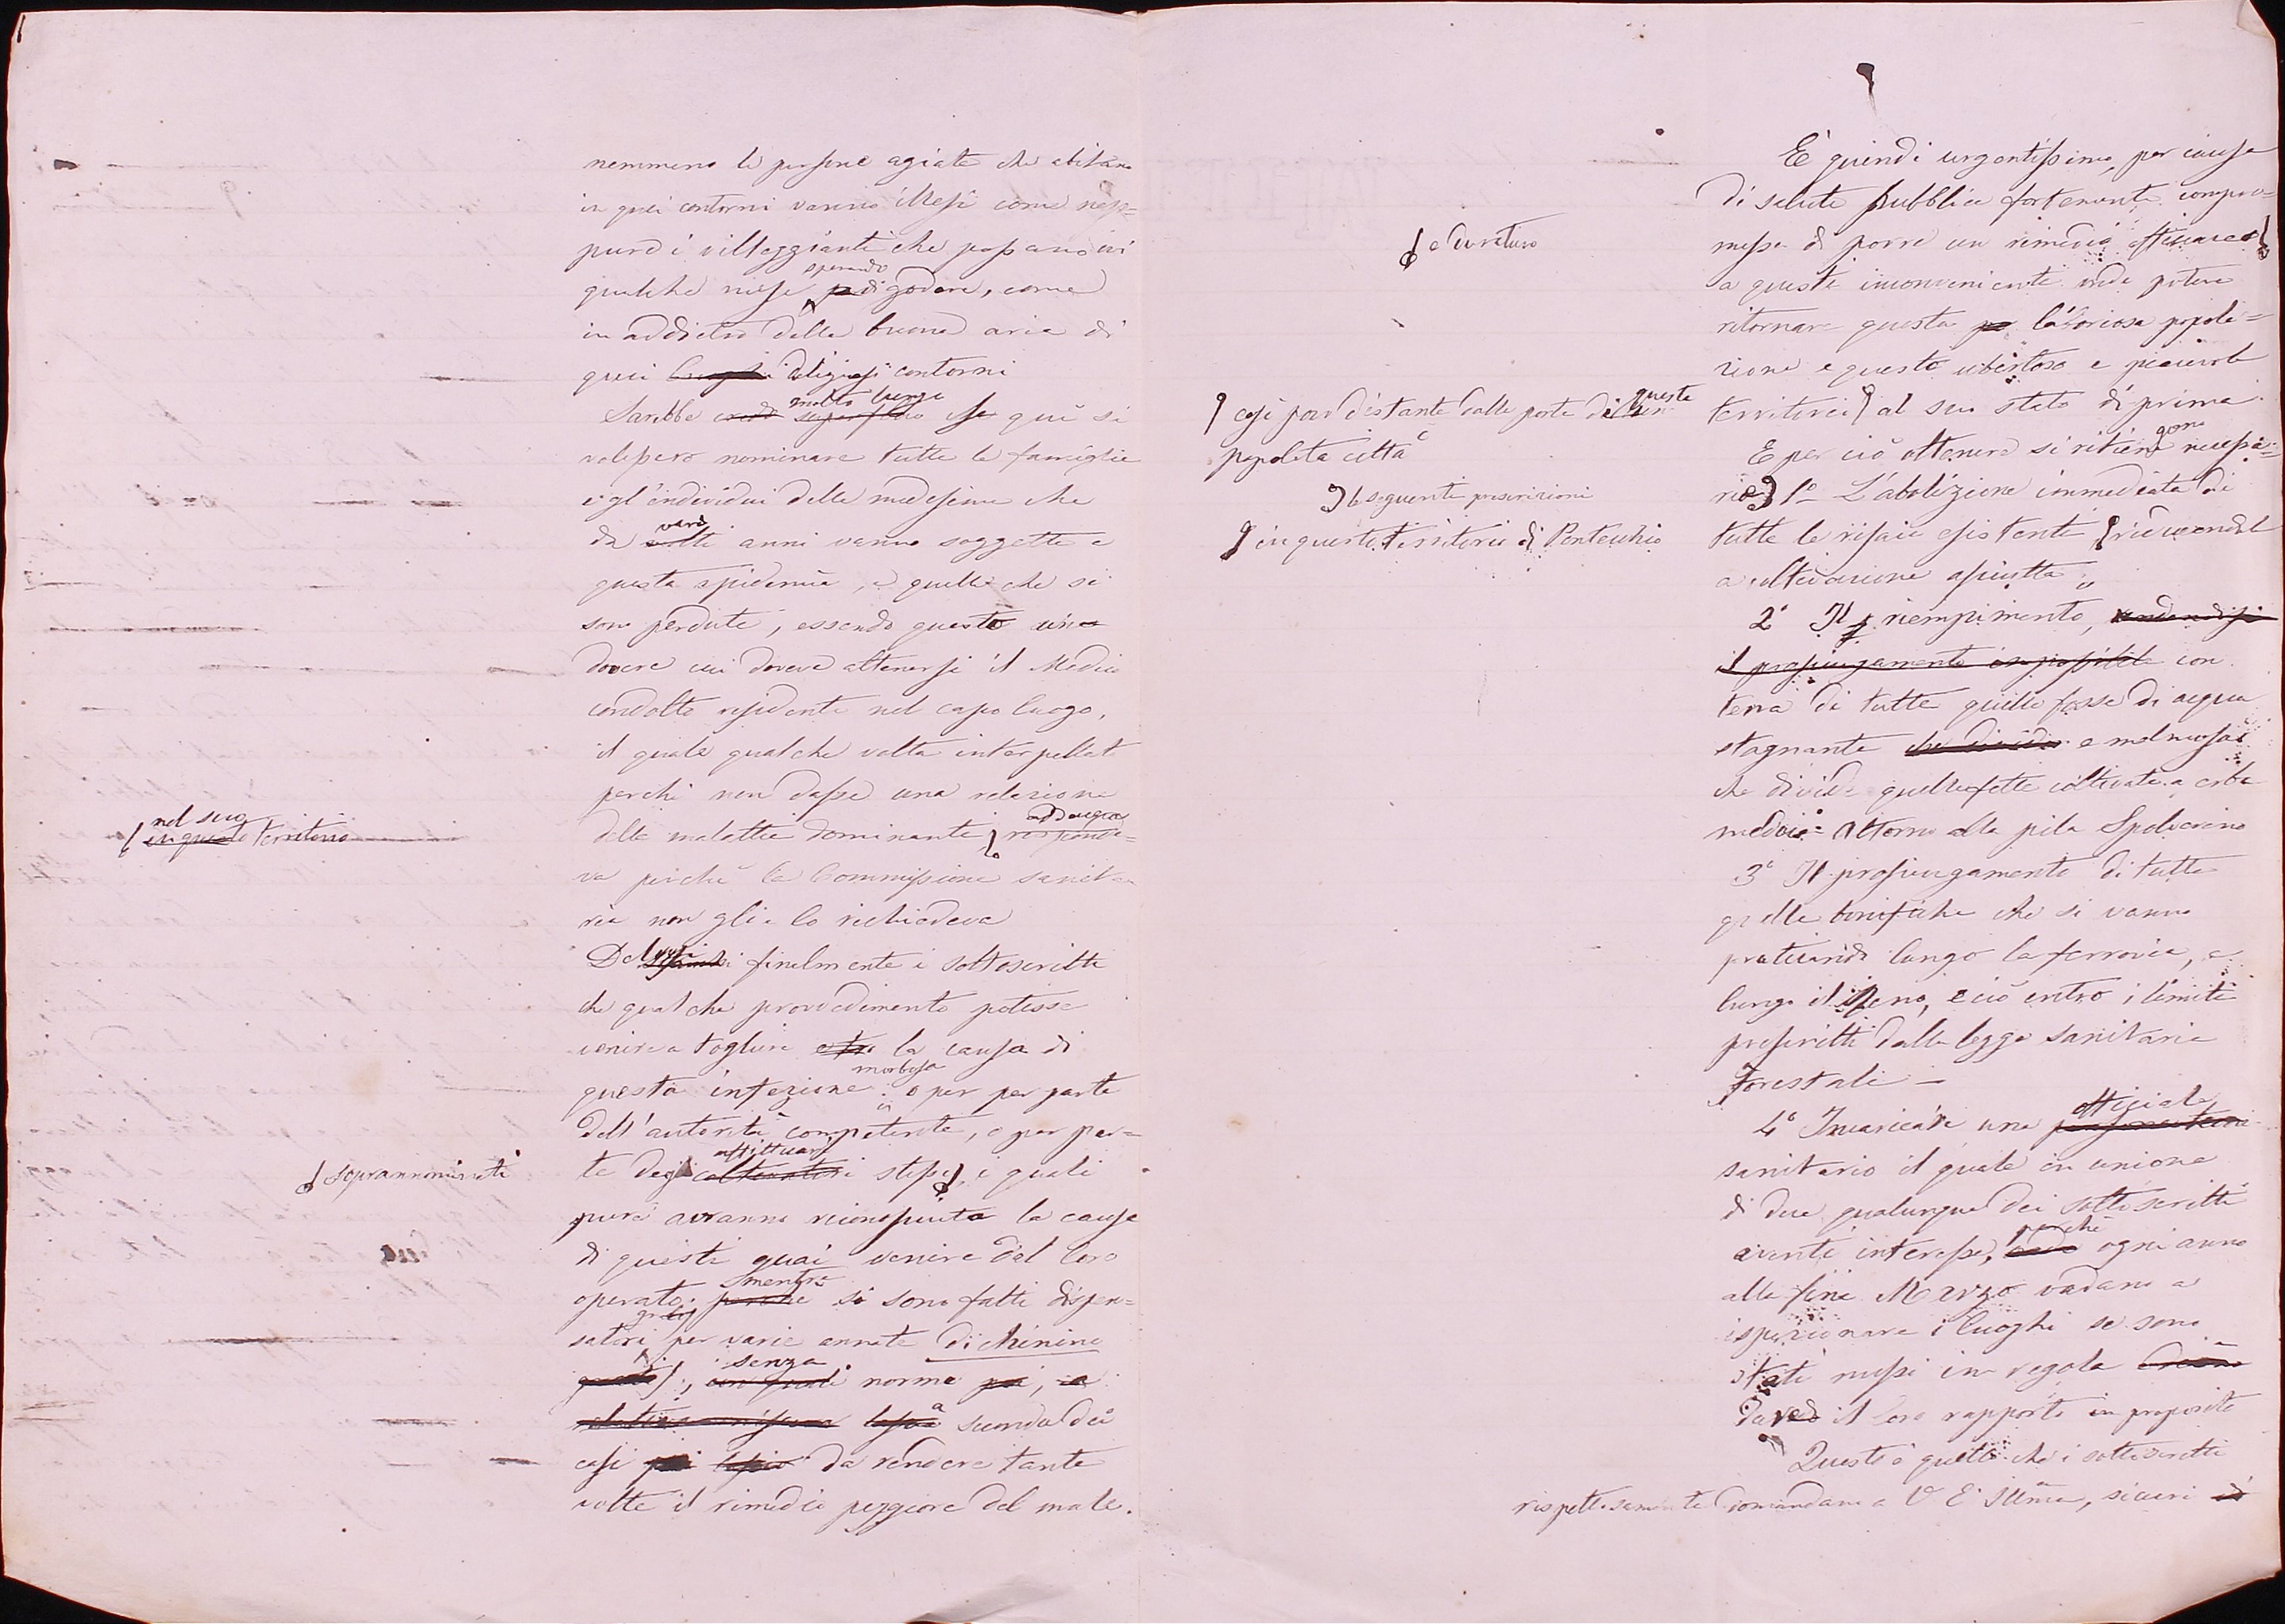 nemmeno le persone agiate che abitano
in quei contorni vanno illesi come nep=
pure i villeggianti che passano ivi
sperando
qualche mese di godere, come
in addietro della buona aria di
quei luoghi deliziosi contorni
molto lungo
Sarebbe credo superfluo se quì si
volessero nominare tutte le famiglie
e gl'individui delle medesime che
varî
da molti anni vanno soggette a
questa epidemia, e quelle che si
sono perdute, essendo questo un
dovere cui doveva attenersi il Medico
condotto residente nel capo luogo,
il quale qualche volta interpellato
perchè non dasse una relazione
nel suo
in questo territorio
adduceva
delle malattie dominanti risponde=
va perchè la Commissione sanita
ria non glie lo richiedeva
Delusi finalmente i sottoscritti
che qualche provvedimento potesse
venire a togliere la causa di
morbosa
questa infezione o per per parte
dell'autorità competente, o per par=
affittuarj
te degli coltivatori stessi, i quali
soprannominati
pure avranno riconosciuta la causa
di questi guai venire dal loro
mentre
operato perchè si sono fatti dispen=
gratis
satori per varie annate di chinino
senza
gratis, norma poi, a
seconda dei
casi da rendere tante
volte il rimedio peggiore del male.
È quindi urgentissimo, per causa
di salute pubblica fortemente compro=
messa di porre un rimedio efficace
e duraturo
a questi inconvenienti onde potere
ritornare questa po laboriosa popola=
zione e questo ubertoso e piacevole
territorio al suo stato di prima
così poco distante dalle porte di questa
popolata città
gono
E per ciò ottenere si ritiene necessa=
rie 1o L'abolizione immediata di
le seguenti prescrizioni
tutte le risaie esistenti riducendole
in questo territorio di Pontecchio
a coltivazione asciutta
2o Il riempimento, rendendosi
il prosciugamento impossibile con
terra di tutte quelle fosse di acqua
stagnante che divide e melmosa
che divide quelle fette coltivate a erba
medica attorno alla pila Spolverino
3o Il prosciugamento di tutte
quelle bonifiche che si vanno
praticando lungo la ferrovia, e
lungo il Reno, e ciò entro i limiti
prescritti dalla legge sanitaria
forestale —
ufficiale
4o Incaricare una persona
sanitario il quale in unione
di due qualunque dei sottoscritti
perchè
aventi interesse, onde ogni anno
alla fine Marzo vadano a
ispezionare i luoghi se sono
stati messi in regola
il loro rapporto in proposito
Questo è quello che i sottoscritti
rispettosamente domandano a V E Illma, sicuri di